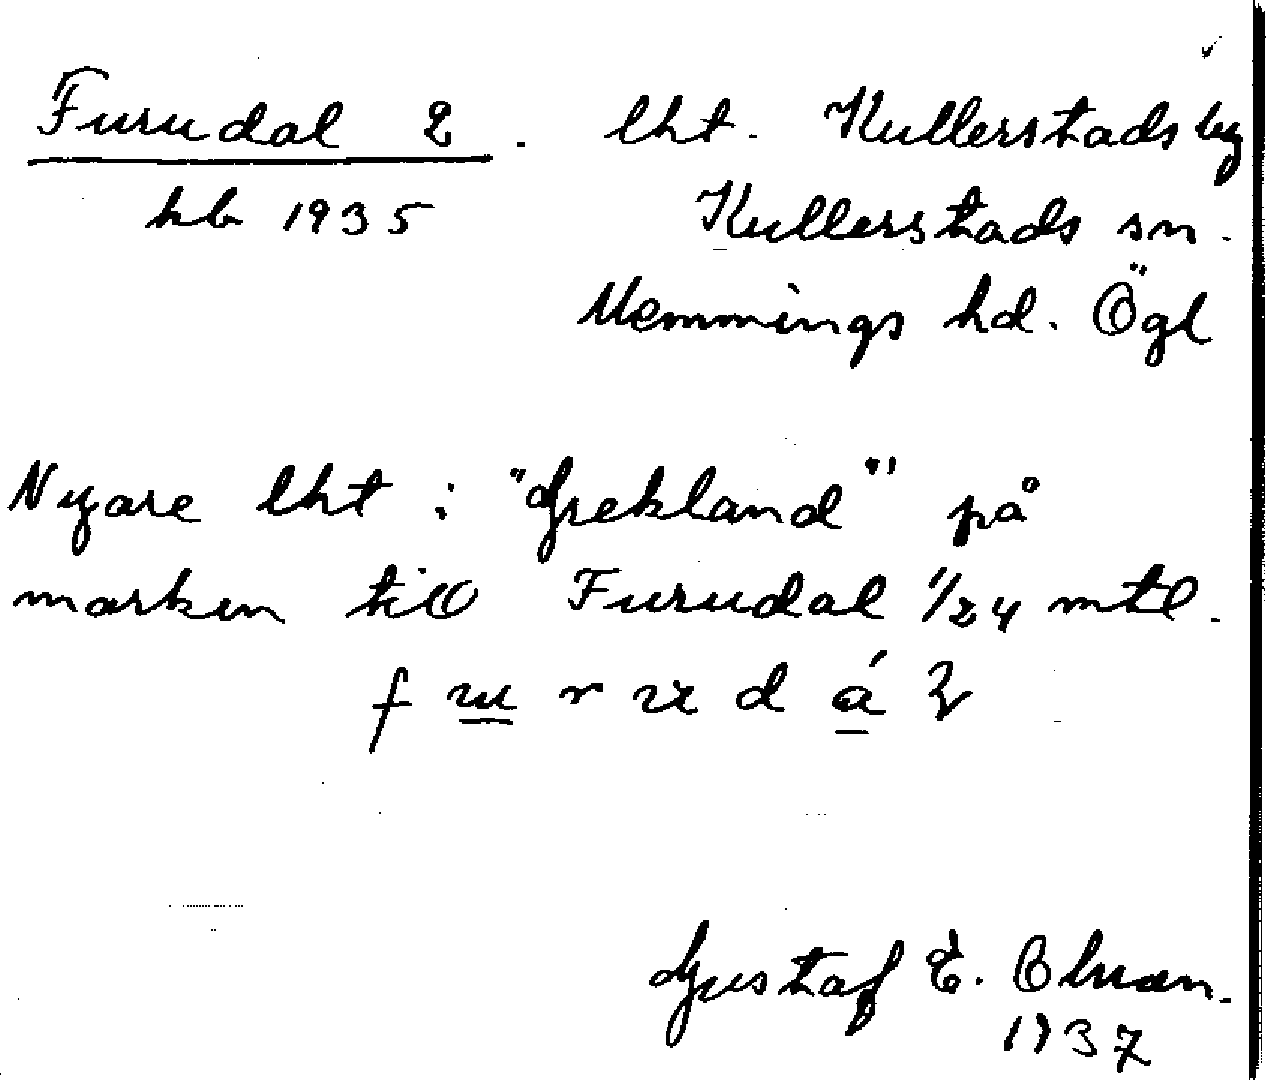 Furudal 2. lht. Kullerstads by
hb 1935 Kullerstads sn.
Memmings hd. Ögl
Nyare lht i "Grekland" på
marken till Furudal 1/24 mtl.
Gustaf E.
1937